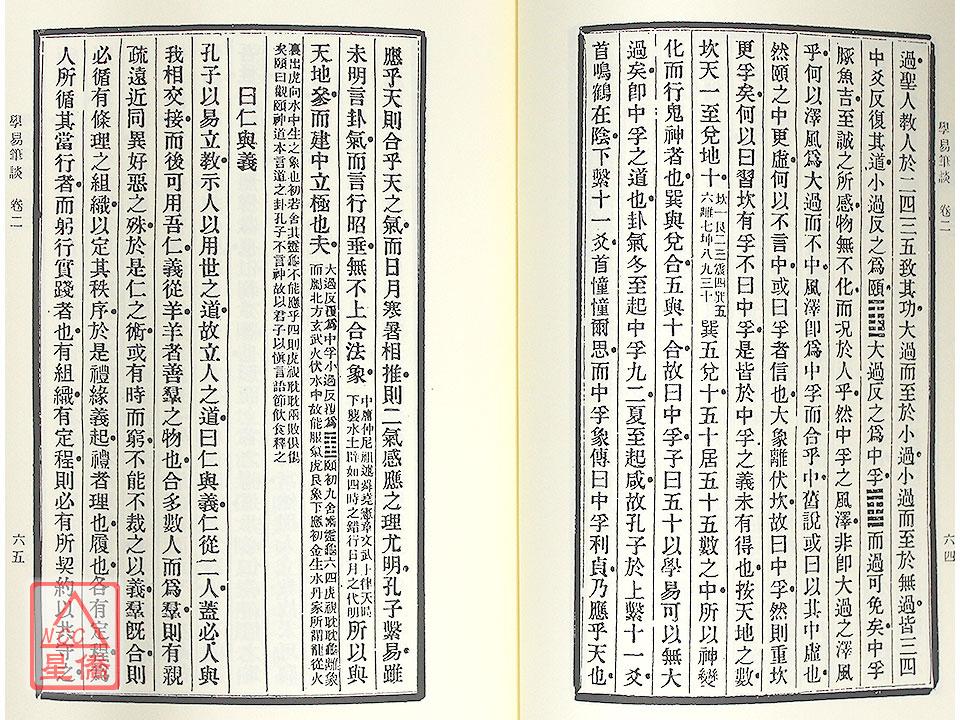 學易筆談 卷二
六四
過聖人教人於二四三五致其功大過而至於小過小過而至於無過皆三四
中爻反復其道小過反之為頤䷚大過反之為中孚䷼而過可免矣中孚
豚魚吉至誠之所感物無不化而況於人乎然中孚之風澤非卽大過之澤風
乎何以澤風爲大過而不中風澤卽爲中孚而合乎中舊說或曰以其中虛也
然頤之中更虛何以不言中或曰孚者信也大象離伏坎故曰中孚然則重坎
更孚矣何以曰習坎有孚不曰中孚是皆於中孚之義未有得也按天地之數
坎天一至兌地十坎一艮二三震四巽五六離七坤八九兌十巽五兌十五十居五十五數之中所以神變
化而行鬼神者也巽與兌合五與十合故曰中孚子曰五十以學易可以無大
過矣卽中孚之道也卦氣冬至起中孚九二夏至起咸故孔子於上繫十一爻
首鳴鶴在陰下繫十一爻首憧憧爾思而中孚象傳曰中孚利貞乃應乎天也
應乎天則合乎天之氣而日月寒暑相推則二氣感應之理尤明孔子繫易雖
未明言卦氣而言行昭垂無不上合法象中庸仲尼祖述堯舜憲章文武上律天時下襲水土辟如四時之錯行日月之代明所以與
天地參而建中立極也夫大過反覆爲中孚小過反復爲䷚頤初九舍爾靈龜六四虎視耽耽龜離象而屬北方玄武火伏水中故能服氣虎艮象下應初金生水丹家所謂龍從火
裏出虎向水中生之象也初若舍其靈龜不能應乎四則虎視耽耽兩敗俱傷
矣頤曰觀頤神道本言道之卦孔子不言神故以君子以愼言語節飲食釋之
曰仁與義
孔子以易立教示人以用世之道故立人之道曰仁與義仁從二人蓋必人與
我相交接而後可用吾仁義從羊羊者善羣之物也合多數人而爲羣則有親
疏遠近同異好惡之殊於是仁之術或有時而窮不能不裁之以義羣旣合則
必循有條理之組織以定其秩序於是禮緣義起禮者理也履也各有定程爲
人所循其當行者而躬行實踐者也有組織有定程則必有所契約以共守之
學易筆談 卷二
六五
NCC
星僑